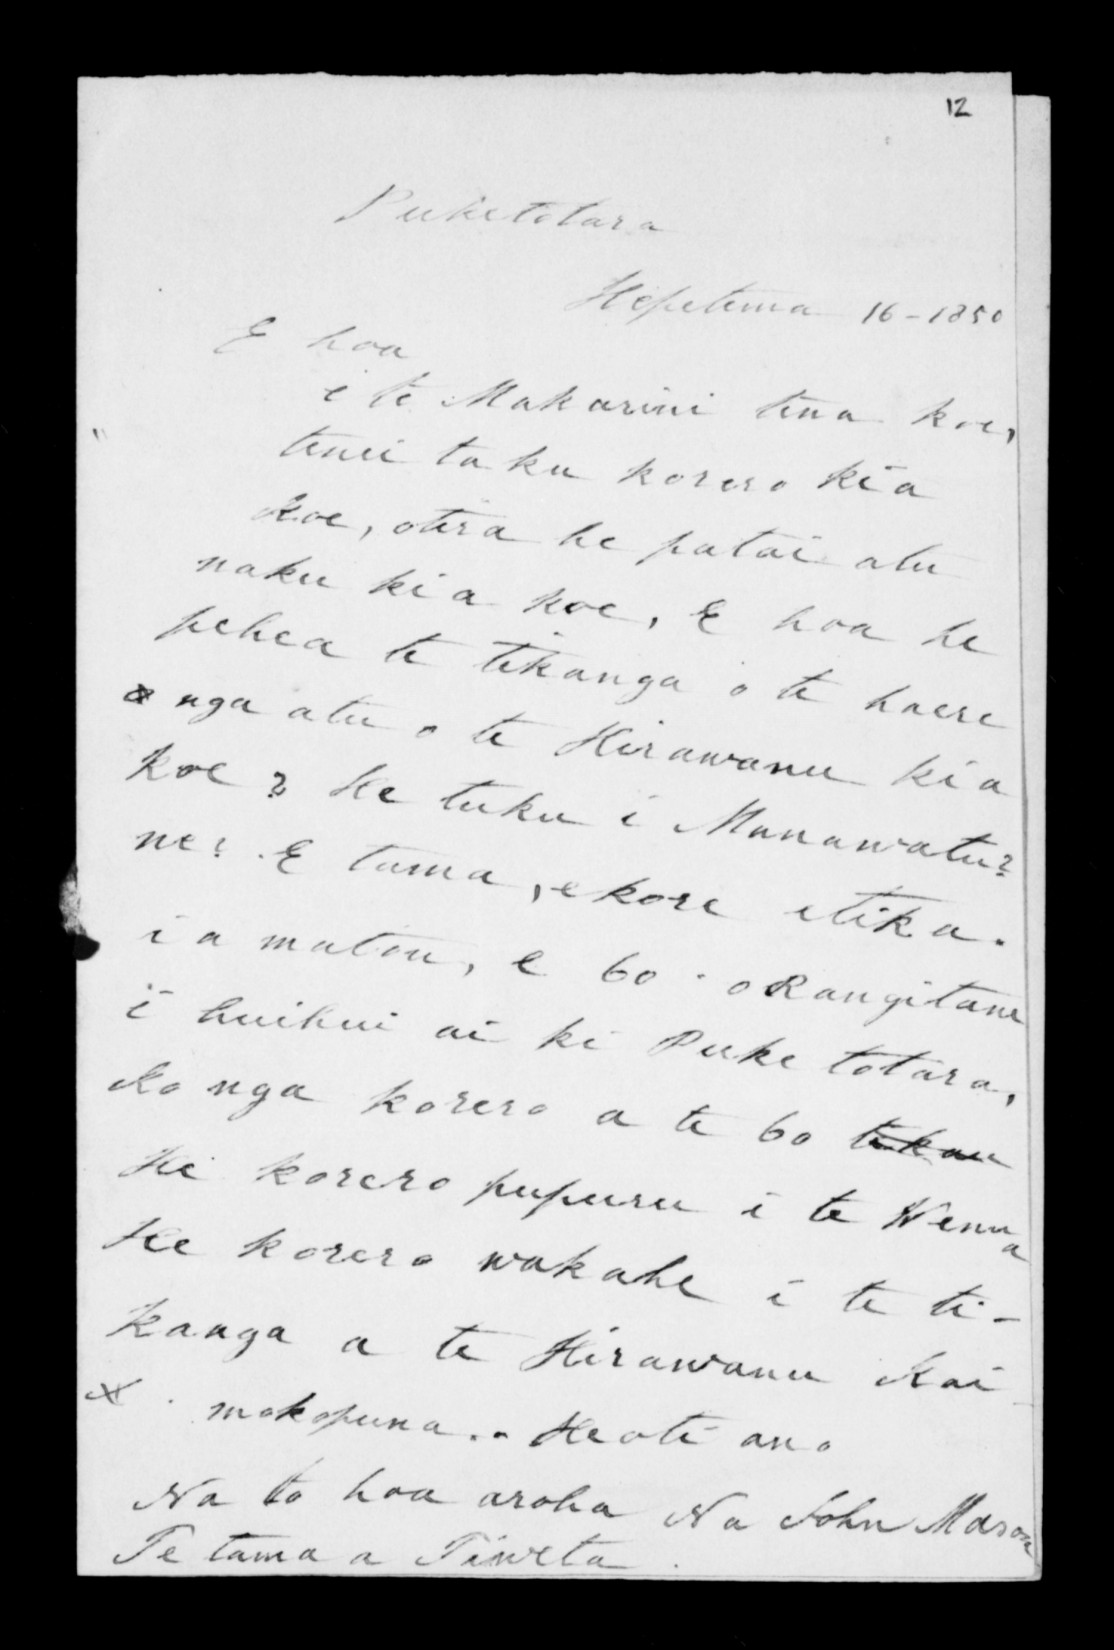 12
Puketotara
Hepetema 16-1850
E hoa
e te Makarini tena koe,
tenei taku korero kia
koe, otira he patai atu
naku kia koe, E hoa he
pehea te tikanga o te haere
nga atu o te Hirawanu kia
koe? He tuku i Manawatu?
ne? E tama, ekore etika.
i a matou, e 60 o Rangitane
i huihui ai ki Puke totara,
Ko nga korero a te 60 tekau
He korero pupuru i te Wenua
He korero wakahe i te ti-
kanga a te Hirawanu Kai
mokopuna.. Heoti ano
Na to hoa aroha Na John Mason
Te tama a Tiweta.